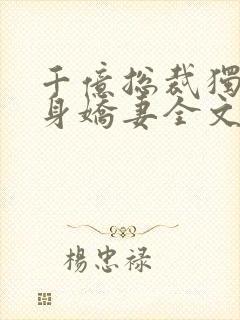 千億总裁獨
身嬌妻全文
楊忠禄